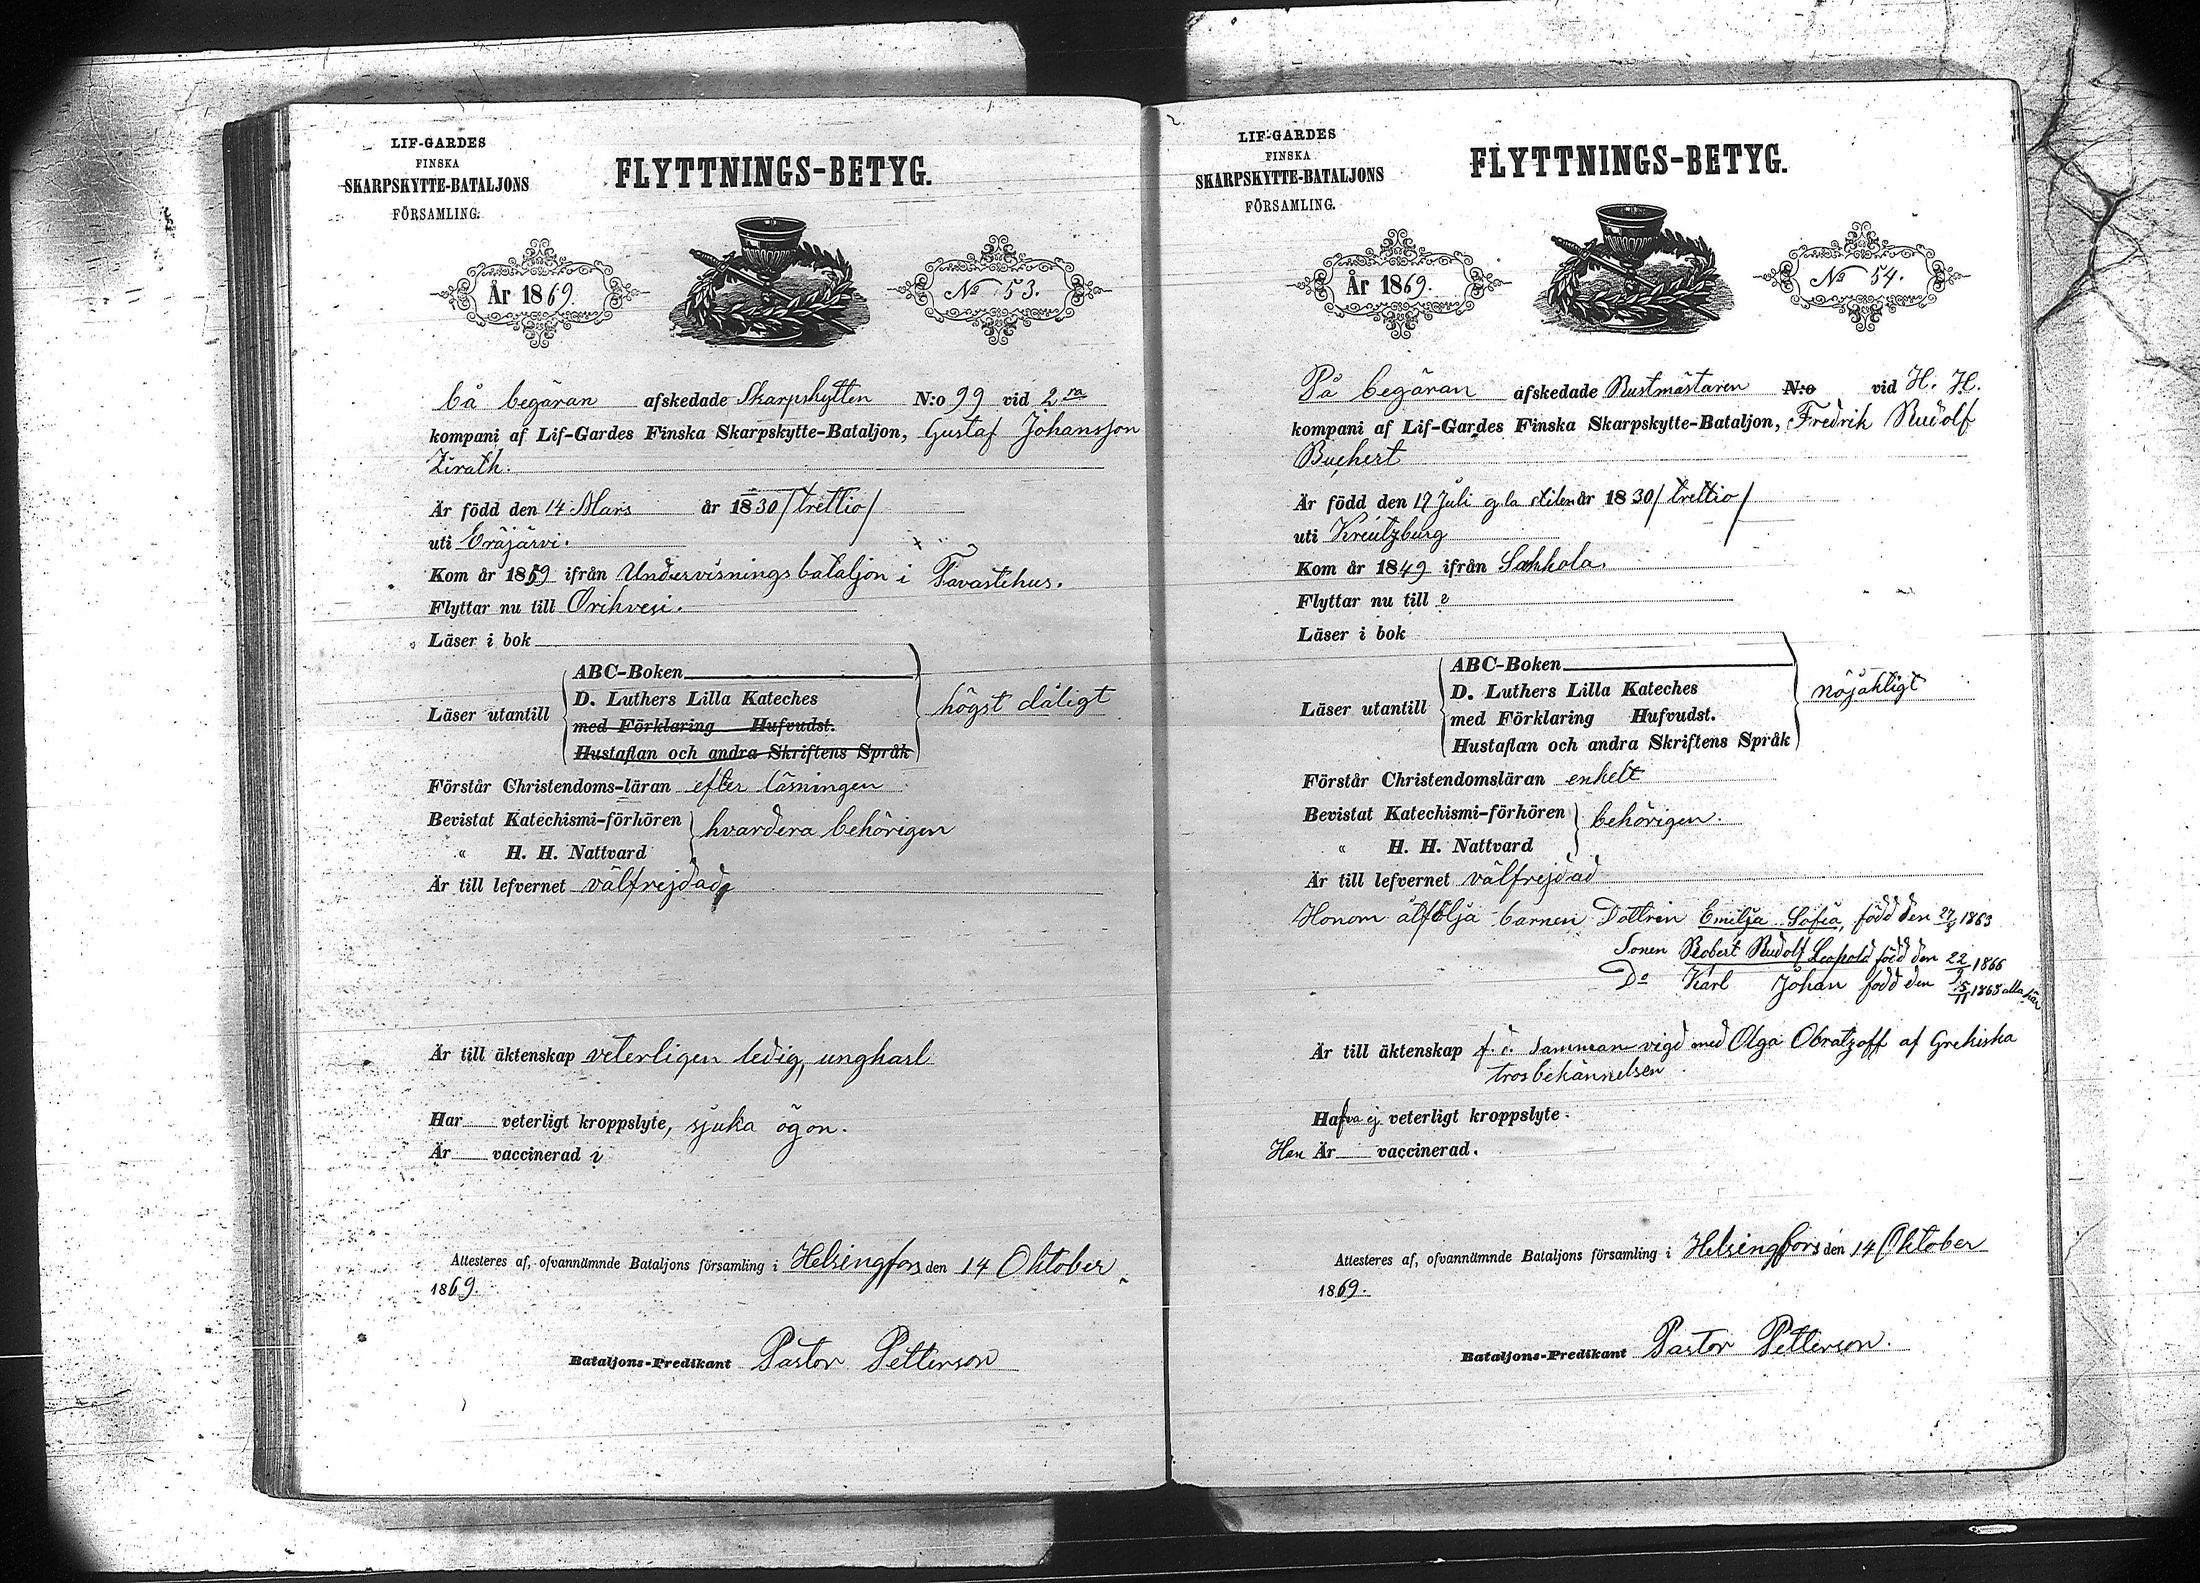 LIF-GARDES
FINSKA
SKARPSKYTTE-BATALJONS
FÖRSAMLING.
FLYTTNINGS-BETYG.
År 1869.
No 53.
På begäran afskedade Skarpskytten N:o 99 vid 2ra
kompani af Lif-Gardes Finska Skarpskytte-Bataljon, Gustaf Johansson
Zirath.
Är född den 14 Mars år 1830 /trettio/
uti Eräjärvi.
Kom år 1859 ifrån Undervisnings bataljon i Tavastehus.
Flyttar nu till Orihvesi.
Läser i bok
ABC-Boken
D. Luthers Lilla Kateches
Läser utantill
med Förklaring Hufvudst.
Hustaflan och andra Skriftens Språk
högst dåligt
Förstår Christendoms-läran efter läsningen
Bevistat Katechismi-förhören
« H. H. Nattvard
hvardera behörigen
Är till lefvernet välfrejdad
Är till äktenskap veterligen ledig, ungkarl
Har veterligt kroppslyte, sjuka ögon.
Är vaccinerad
Attesteres af, ofvannämnde Bataljons församling i Helsingfors den 14 Oktober
1869.
Bataljons-Predikant Pastor Petterson
LIF-GARDES
FINSKA
SKARPSKYTTE-BATALJONS
FÖRSAMLING.
FLYTTNINGS-BETYG.
År 1869.
No 54.
På begäran afskedade Rustmästaren N:o vid H. H.
kompani af Lif-Gardes Finska Skarpskytte-Bataljon, Fredrik Rudolf
Buchert
Är född den 17 Juli gla stilen år 1830 /trettio/
uti Kreutzburg
Kom år 1849 ifrån Sakkola.
Flyttar nu till
Läser i bok
ABC-Boken
D. Luthers Lilla Kateches
Läser utantill
med Förklaring Hufvudst.
Hustaflan och andra Skriftens Språk
nöjaktigt
Förstår Christendomsläran enkelt
Bevistat Katechismi-förhören
« H. H. Nattvard
behörigen.
Är till lefvernet välfrejdad
Honom åtfölja barnen Dottren Emilja Sofia, född den 27/3 1863
Sonen Robert Rudolf Leopold född den 22/9 1866
Do Karl Johan född den 15/11 1868 alla här
Är till äktenskap f. d. sammanvigd med Olga Obratzoff af Grekiska
trosbekännelsen
Hafva ej veterligt kroppslyte.
Han Är vaccinerad.
Attesteres af, ofvannämnde Bataljons församling i Helsingfors den 14 Oktober
1869.
Bataljons-Predikant Pastor Petterson.